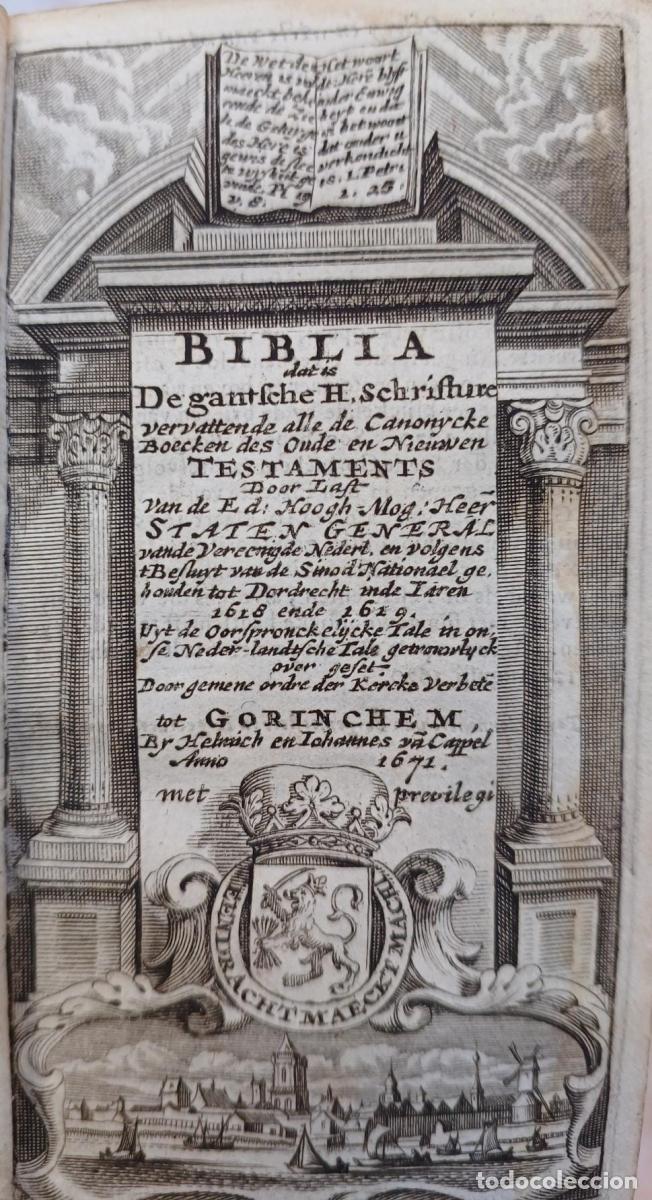 De Wet des
Heeren is vol
maeckt beke
rende de Zie
des Heere is
gewis de slec
v. 8.
Het woort
des Heere blijft
inder Eewig
heyt en dit
is het woort
dat onder u
verkondicht
is. 1. Petri
1. 25.
BIBLIA
dat is
De gantsche H. Schrifture
vervattende alle de Canonycke
Boecken des Oude en Nieuwen
TESTAMENTS
Door Last
van de Ed: Hoogh-Mog: Heer̄
STATEN GENERAL
vande Vereenigde Nederl. en volgens
tBesluyt van de Sinod Nationael ge,
houden tot Dordrecht inde Iaren
1618 ende 1619.
Uyt de Oorspronckelijcke Tale in on,
se Neder-landtsche Tale getrouwlyck
over geset
Door gemene ordre der Kercke Verbete
tot GORINCHEM,
By Helmich en Iohannes vā Cappel
Anno 1671.
met previlegi
EENDRACHT MAECKT MACH
todocoleccion